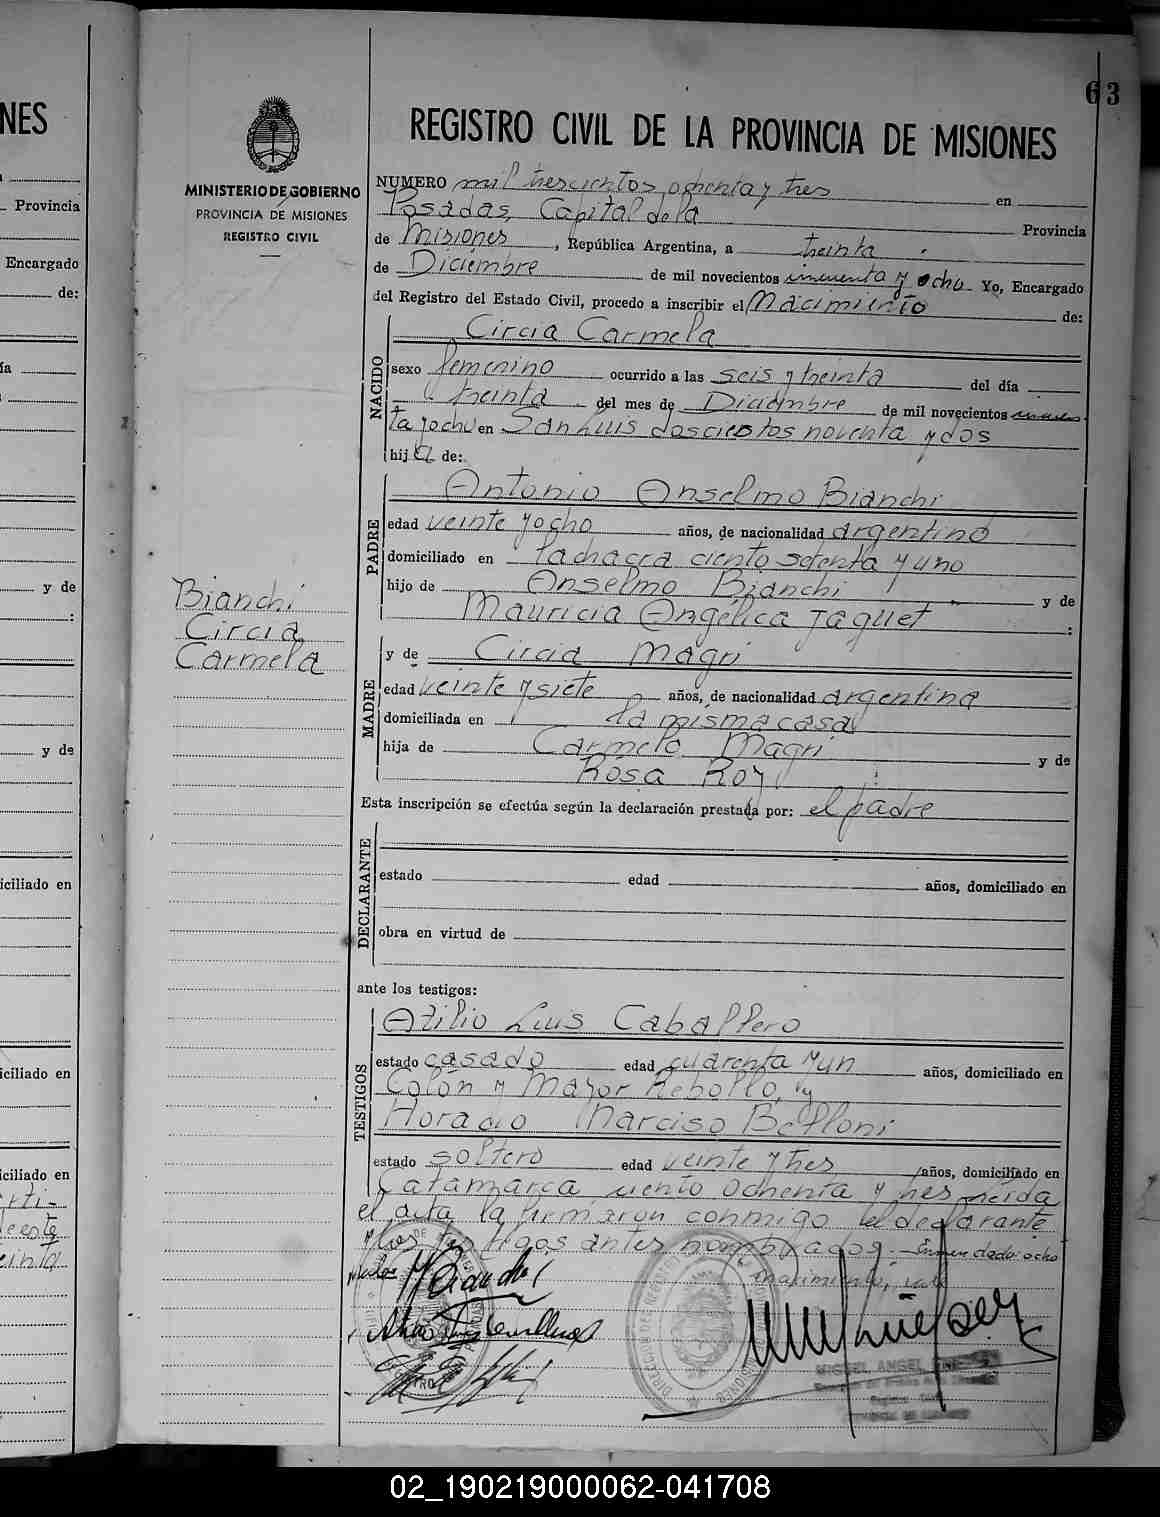 NES
Provincia
Encargado
de:
ía
y de
:
y de
iciliado en
iciliado en
iciliado en
63
MINISTERIO DE GOBIERNO
PROVINCIA DE MISIONES
REGISTRO CIVIL
Bianchi
Circia
Carmela
REGISTRO CIVIL DE LA PROVINCIA DE MISIONES
NUMERO mil trescientos ochenta y tres en
Posadas, Capital de la Provincia
de Misiones, República Argentina, a treinta
de Diciembre de mil novecientos cincuenta y ocho Yo, Encargado
del Registro del Estado Civil, procedo a inscribir el Nacimiento de:
NACIDO
Circia Carmela
sexo femenino ocurrido a las seis y treinta del día
treinta del mes de Diciembre de mil novecientos cincuen
ta y ocho en San Luis doscientos noventa y dos
hija de:
PADRE
Antonio Anselmo Bianchi
edad veinte y ocho años, de nacionalidad argentino
domiciliado en la chacra ciento setenta y uno
hijo de Anselmo Bianchi y de
Mauricia Angélica Jaquet :
MADRE
y de Circia Magri
edad veinte y siete años, de nacionalidad argentina
domiciliada en la misma casa
hija de Carmelo Magri y de
Rosa Roy
Esta inscripción se efectúa según la declaración prestada por: el padre
DECLARANTE
estado edad años, domiciliado en
obra en virtud de
ante los testigos:
TESTIGOS
Atilio Luis Caballero
estado casado edad cuarenta y un años, domiciliado en
Colón y Mayor Rebollo, y
Horacio Narciso Belloni
estado soltero edad veinte y tres años, domiciliado en
Catamarca ciento ochenta y tres leída
el acta la firmaron conmigo el declarante
y los testigos antes nombrados. Enmendado: ocho
nacimiento, vale
MIGUEL ANGEL
02_190219000062-041708